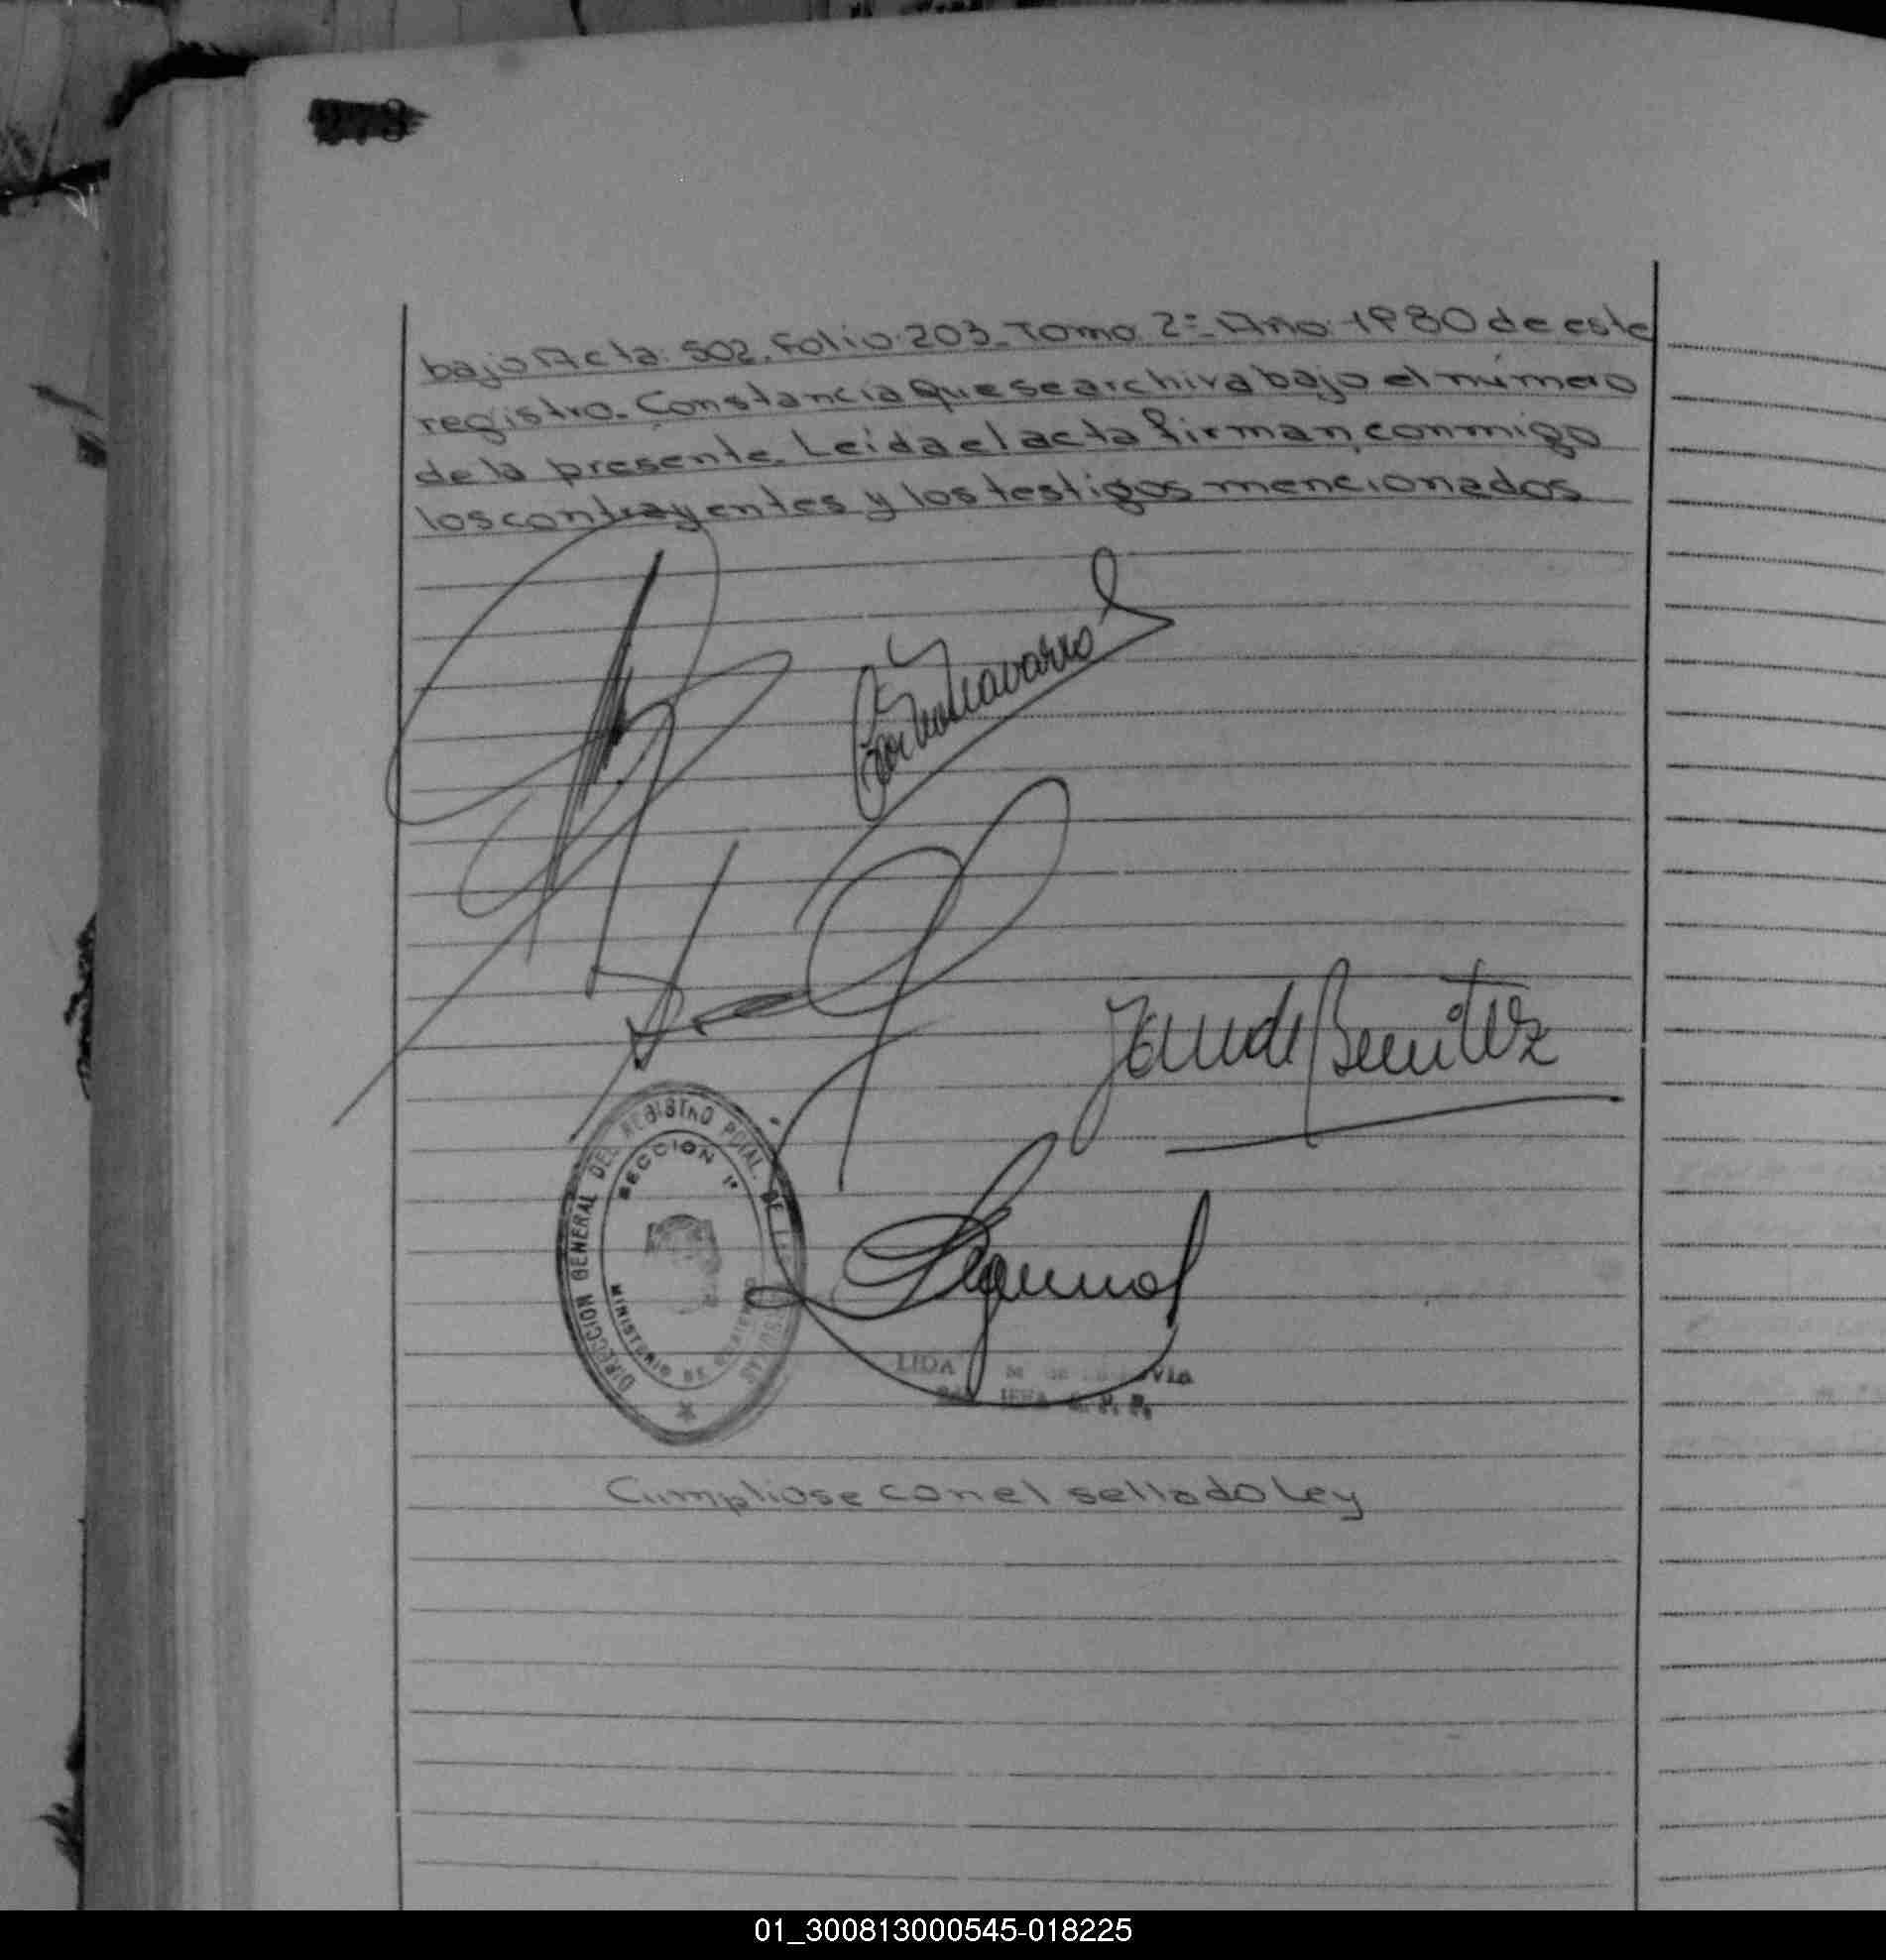 bajo Acta: 502. Folio: 203_ Tomo: 2º_ Año: 1980 de este
registro_ Constancia que se archiva bajo el número
de la presente. Leida el acta firman, conmigo
los contrayentes y los testigos mencionados
Navarro
de Benitez
DIRECCION GENERAL DEL REGISTRO PCIAL. DE LAS
SECCION 1ª
MINISTERIO DE GOBIERNO
LIDA M. DE
JEFA
Cumpliose con el sellado Ley
01_300813000545-018225